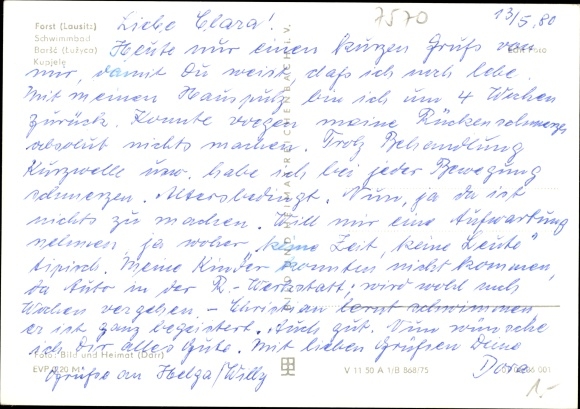 Forst (Lausitz)
Schwimmbad
Baršć (Łužyca)
Kupjele
7570
13/5.80
Liebe Clara!
Heute nur einen kurzen Gruß von
mir, damit Du weist, daß ich noch lebe.
Mit meinen Hausputz bin ich um 4 Wochen
zurück. Konnte wegen meine Rückenschmerzen
absolut nichts machen. Trotz Behandlung
Kurzwelle usw. habe ich bei jeder Bewegung
schmerzen. Altersbedingt. Nun, ja da ist
nichts zu machen. Will mir eine Aufwartung
nehmen, ja woher, keine Zeit, keine Leute"
tipisch. Meine Kinder konnten nicht kommen,
da Auto in der R.-Werkstatt, wird wohl noch
Wochen vergehen. - Christian lernt schwimmen,
er ist ganz begeistert. Auch gut. Nun wünsche
ich Dir alles Gute. Mit lieben Grüßen Deine
Dora
Grüße an Helga/Willy
Foto: Bild und Heimat (Darr)
EVP 0,20 M
V 11 50 A 1/B 868/75
001
1.-